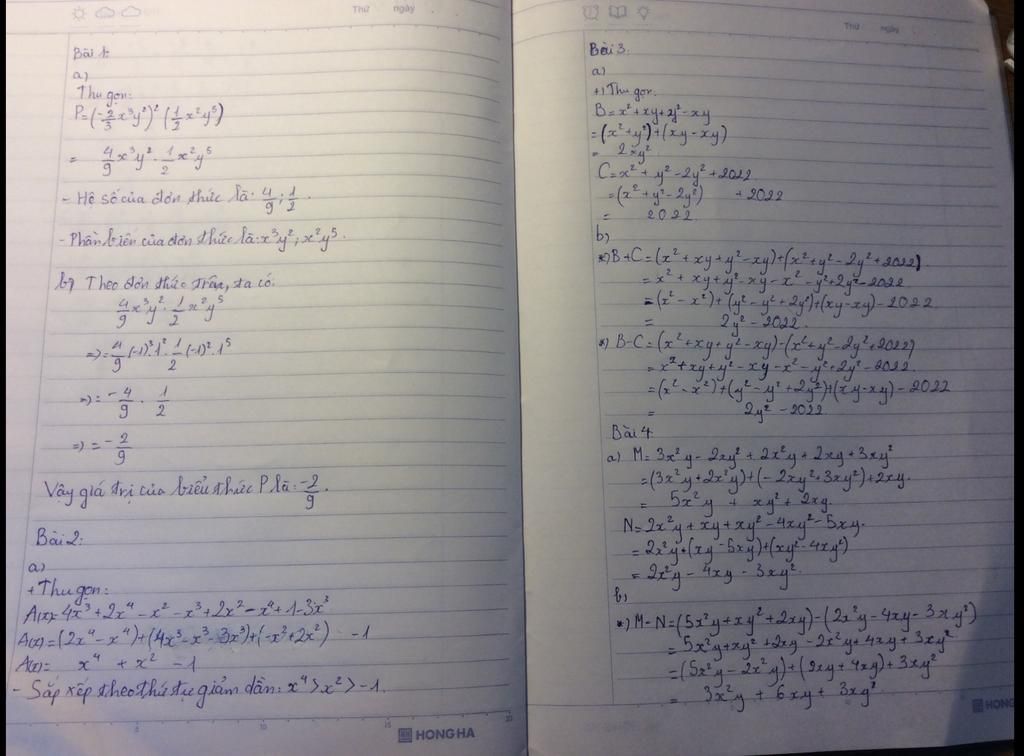 Thứ ngày
Bài 1:
a)
Thu gọn:
P=(-2/3 x³y²)² (1/2 x²y⁵)
= 4/9 x³y² . 1/2 x²y⁵
- Hệ số của đơn thức là: 4/9 ; 1/2 .
- Phần biến của đơn thức là: x³y² ; x²y⁵.
b) Theo đơn thức trên, ta có:
4/9 x³y² . 1/2 x²y⁵
=> = 4/9 (-1)³.1² . 1/2 (-1)² . 1⁵
=> = -4/9 . 1/2
=> = -2/9
Vậy giá trị của biểu thức P là: -2/9 .
Bài 2:
a)
+ Thu gọn:
A(x)= 4x³ + 2x⁴ - x² - x³ + 2x² - x⁴ + 1 - 3x³
A(x) = (2x⁴ - x⁴) + (4x³ - x³ - 3x³) + (-x² + 2x²) - 1
A(x) = x⁴ + x² - 1
- Sắp xếp theo thứ tự giảm dần: x⁴ > x² > -1.
HONG HA
Thứ ngày
Bài 3.
a)
+) Thu gọn.
B = x² + xy + y² - xy
= (x² + y²) + (xy - xy)
= 2xy²
C = x² + y² - 2y² + 2022
= (x² + y² - 2y²) + 2022
= 2022.
b)
*) B + C = (x² + xy + y² - xy) + (x² + y² - 2y² + 2022).
= x² + xy + y² - xy - x² - y² + 2y² - 2022
= (x² - x²) + (y² - y² + 2y²) + (xy - xy) - 2022
= 2y² - 2022.
*) B - C = (x² + xy + y² - xy) - (x² + y² - 2y² + 2022)
= x² + xy + y² - xy - x² - y² + 2y² - 2022.
= (x² - x²) + (y² - y² + 2y²) + (xy - xy) - 2022
= 2y² - 2022.
Bài 4.
a) M = 3x²y - 2xy² + 2x²y + 2xy + 3xy²
= (3x²y + 2x²y) + (-2xy² + 3xy²) + 2xy.
= 5x²y + xy² + 2xy.
N = 2x²y + xy + xy² - 4xy² - 5xy.
= 2x²y + (xy - 5xy) + (xy² - 4xy²)
= 2x²y - 4xy - 3xy².
b)
*) M - N = (5x²y + xy² + 2xy) - (2x²y - 4xy - 3xy²)
= 5x²y + xy² + 2xy - 2x²y + 4xy + 3xy²
= (5x²y - 2x²y) + (2xy + 4xy) + 3xy²
= 3x²y + 6xy + 3xy².
HONG